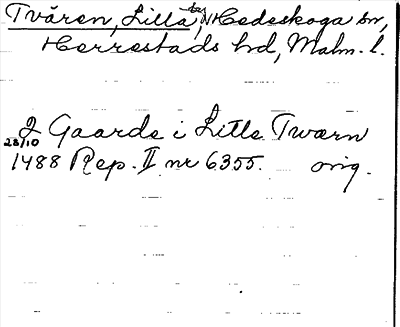 Tvären, Lilla, Hedeskoga sn,
Herrestads hd, Malm. l.
2 Gaarde i Litle Twærn
23/10
1488 Rep. II nr 6355. orig.